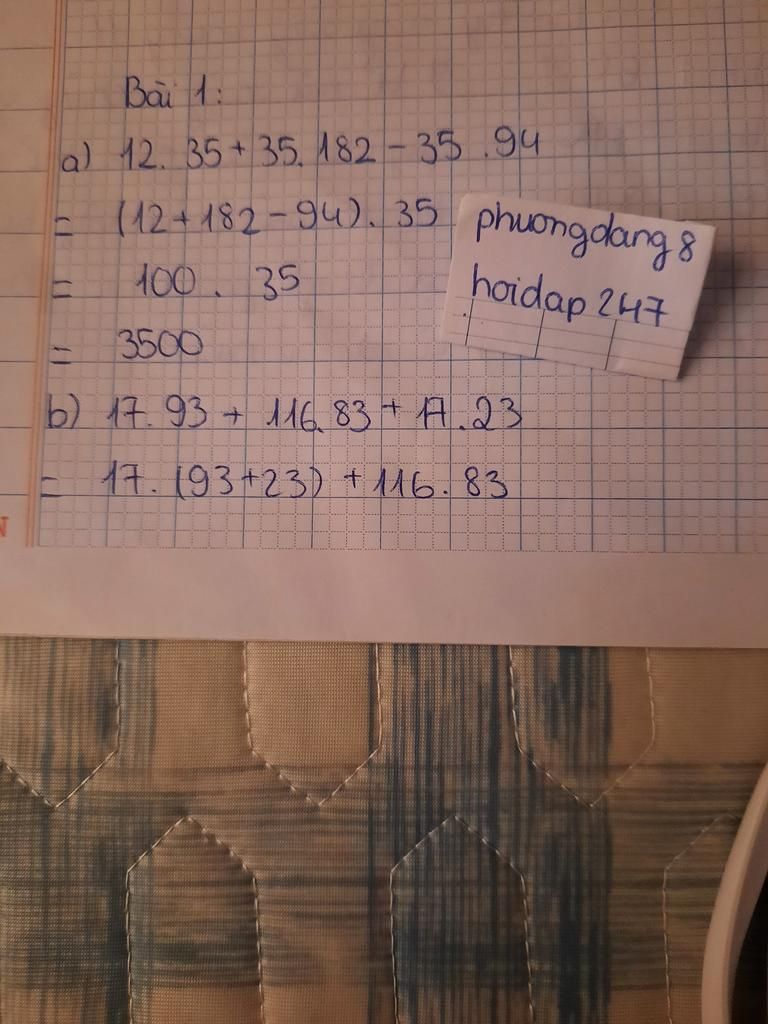 Bài 1:
a) 12. 35 + 35. 182 - 35 . 94
= (12 + 182 - 94) . 35
= 100 . 35
= 3500
phuongdang8
hoidap 247
b) 17. 93 + 116. 83 + 17. 23
= 17. (93 + 23) + 116. 83
N